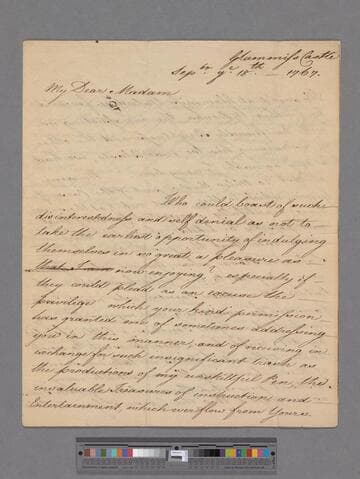 Glammiss Castle
Sepber ye 18th — 1767.
My Dear Madam
Who could boast of such
disinterestedness and self denial as not to
take the earliest opportunity of indulging
themselves in so great a pleasure as
that I am now enjoying? especially if
they could plead as an excuse the
priviledge which your kind permission
has granted me of sometimes addressing
you in this manner, and of receiving in
exchange for such insignificant trash as
the productions of my unskillful Pen, the
invaluable Treasures of instruction and
Entertainment, which overflow from Yours.